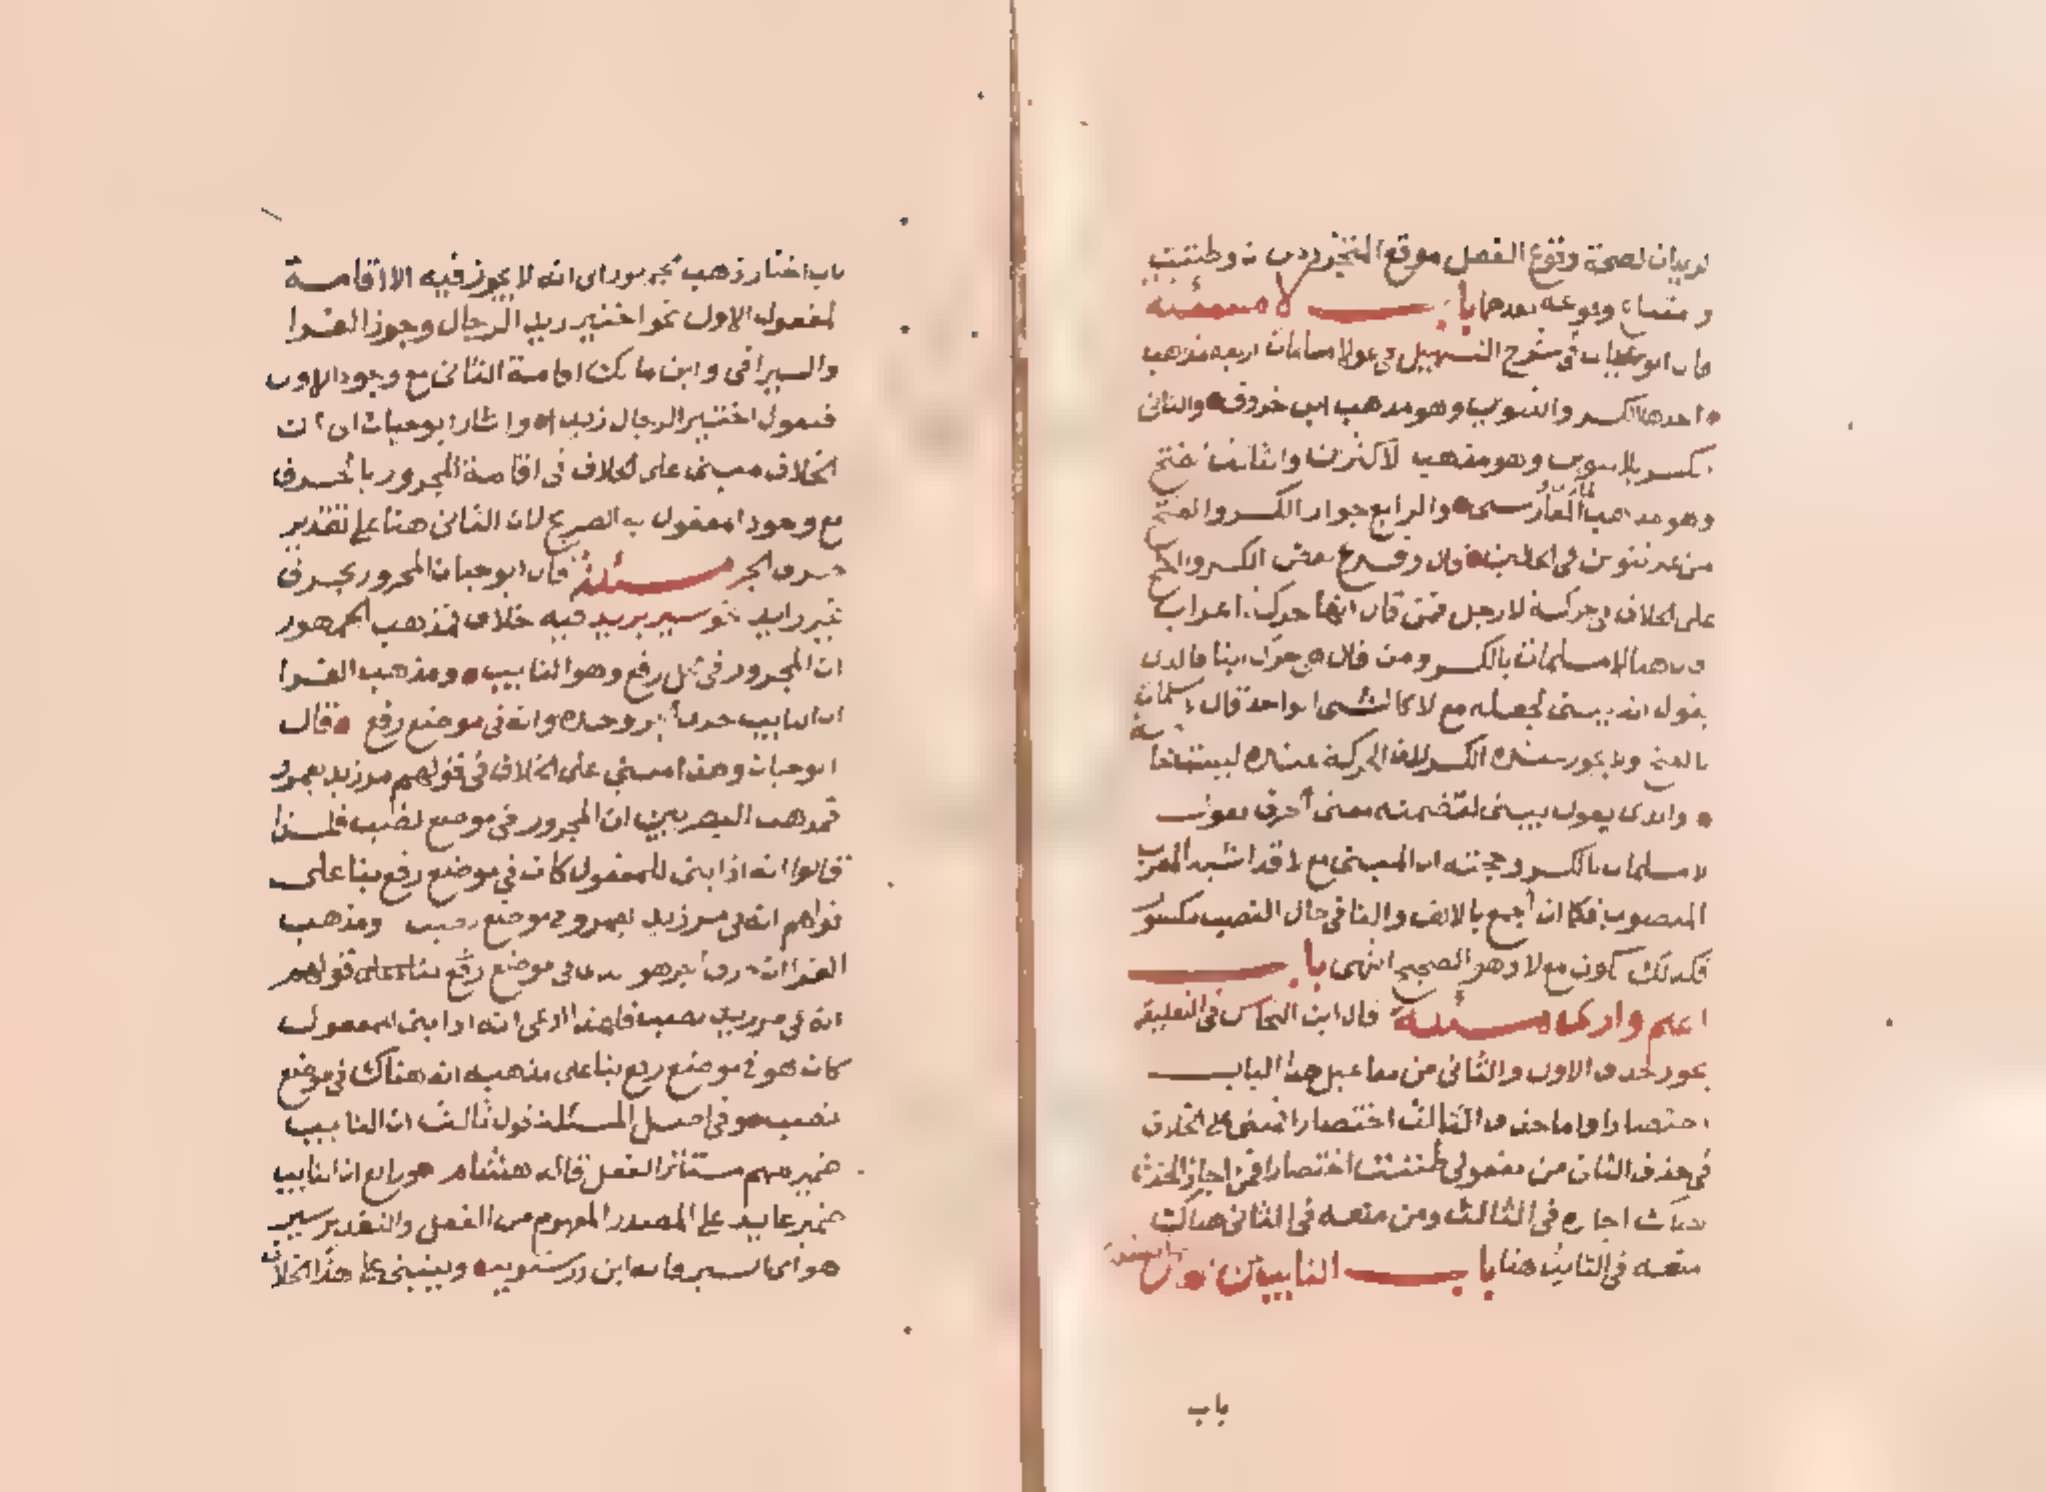 لصحة وقوع الفصل موقع
وقوعه بعدها باب لا مسئلة
قال ابو حيان في شرح التسهيل في نحو لا مسلمات اربعة مذهب
احدها الكسر والتنوين وهو مذهب ابن خروف والثاني
الكسر بلا تنوين وهو مذهب الاكثرين والثالث الفتح
وهو مذهب المازني والفارسي والرابع جواز الكسر والفتح
من غير تنوين في الحالين قال وفرع بعض الكسر والفتح
على الخلاف في حركة لا رجل فمن قال انها حركة اعراب
قال هنا لا مسلمات بالكسر ومن قال هي حركة بنا فالذي
يقول انه يبنى لجعله مع لا كالشي الواحد قال لا مسلمات
بالفتح ولا يجوز عنده الكسر لان الحركة عنده ليست
والذي يقول يبنى لتضمنه معنى الحرف يقول
لا مسلمات بالكسر وحجته ان المبنى مع لا قد اشبه المعرب
المنصوب فكما ان الجمع بالالف والتا في حال النصب مكسور
فكذلك يكون مع لا وهو الصحيح انتهى باب
اعلم وارى مسئلة قال ابن النحاس في التعليقة
يجوز حذف الاول والثاني من مفاعيل هذا الباب
اختصارا واما حذف الثالث اختصارا فمبني على الخلاف
في حذف الثاني من مفعولي ظننت اختصارا فمن اجاز الحذف
هناك اجازه في الثالث ومن منعه في الثاني هناك
منعه في الثالث هنا باب النايب عن
باب
باب اختار ذهب الجمهور الى انه لا يجوز فيه الا اقامة
المفعول الاول نحو اختير زيد الرجال وجوز الفرا
والسيرافي وابن مالك اقامة الثاني مع وجود الاول
فتقول اختير الرجال زيدا واشار ابو حيان الى ان
الخلاف مبني على الخلاف في اقامة المجرور بالحرف
مع وجود المفعول به الصريح لان الثاني هنا على تقدير
حرف الجر مسئلة قال ابو حيان المجرور بحرف
غير زايد نحو سير بزيد فيه خلاف فمذهب الجمهور
ان المجرور في محل رفع وهو النايب ومذهب الفرا
ان النايب حرف الجر وحده وانه في موضع رفع قال
ابو حيان وهذا مبني على الخلاف في قولهم مر زيد بعمرو
فمذهب البصريين ان المجرور في موضع نصب فلهذا
قالوا انه اذا بنى للمفعول كان في موضع رفع بنا على
قولهم انه في مر زيد بعمرو في موضع نصب ومذهب
الفرا ان حرف الجر هو الذي في موضع رفع بنا على قولهم
انه في مر زيد نصب فلهذا ادعى انه اذا بنى للمفعول
كان هو في موضع رفع بنا على مذهبه انه هناك في موضع
نصب وفي اصل المسئلة قول ثالث ان النايب
ضمير مبهم مستتر في الفعل قاله هشام ورابع ان النايب
ضمير عايد على المصدر المفهوم من الفعل والتقدير سير
هو اي السير قاله ابن درستويه وينبني على هذا الخلاف